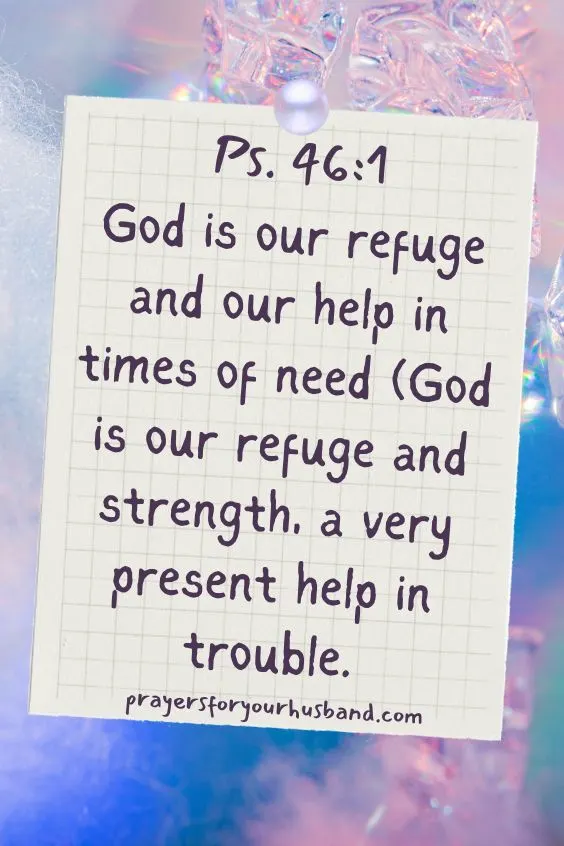 Ps. 46:1
God is our refuge
and our help in
times of need (God
is our refuge and
strength, a very
present help in
trouble.
prayersforyourhusband.com